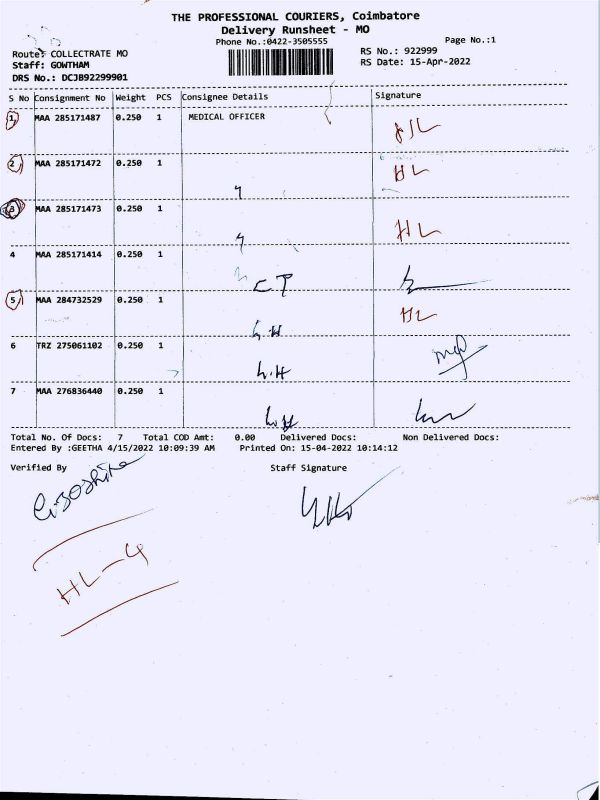 THE PROFESSIONAL COURIERS, Coimbatore
Delivery Runsheet - MO
Phone No.:0422-3505555 Page No.:1
Route: COLLECTRATE MO RS No.: 922999
Staff: GOWTHAM RS Date: 15-Apr-2022
DRS No.: DCJB92299901
S No Consignment No Weight PCS Consignee Details Signature
1 MAA 285171487 0.250 1 MEDICAL OFFICER
HL
2 MAA 285171472 0.250 1 HL
3 MAA 285171473 0.250 1
HL
4 MAA 285171414 0.250 1
CT
5 MAA 284732529 0.250 1 HL
L.H
6 TRZ 275061102 0.250 1
L.H
7 MAA 276836440 0.250 1
L.H
Total No. Of Docs: 7 Total COD Amt: 0.00 Delivered Docs: Non Delivered Docs:
Entered By :GEETHA 4/15/2022 10:09:39 AM Printed On: 15-04-2022 10:14:12
Verified By Staff Signature
HL-4